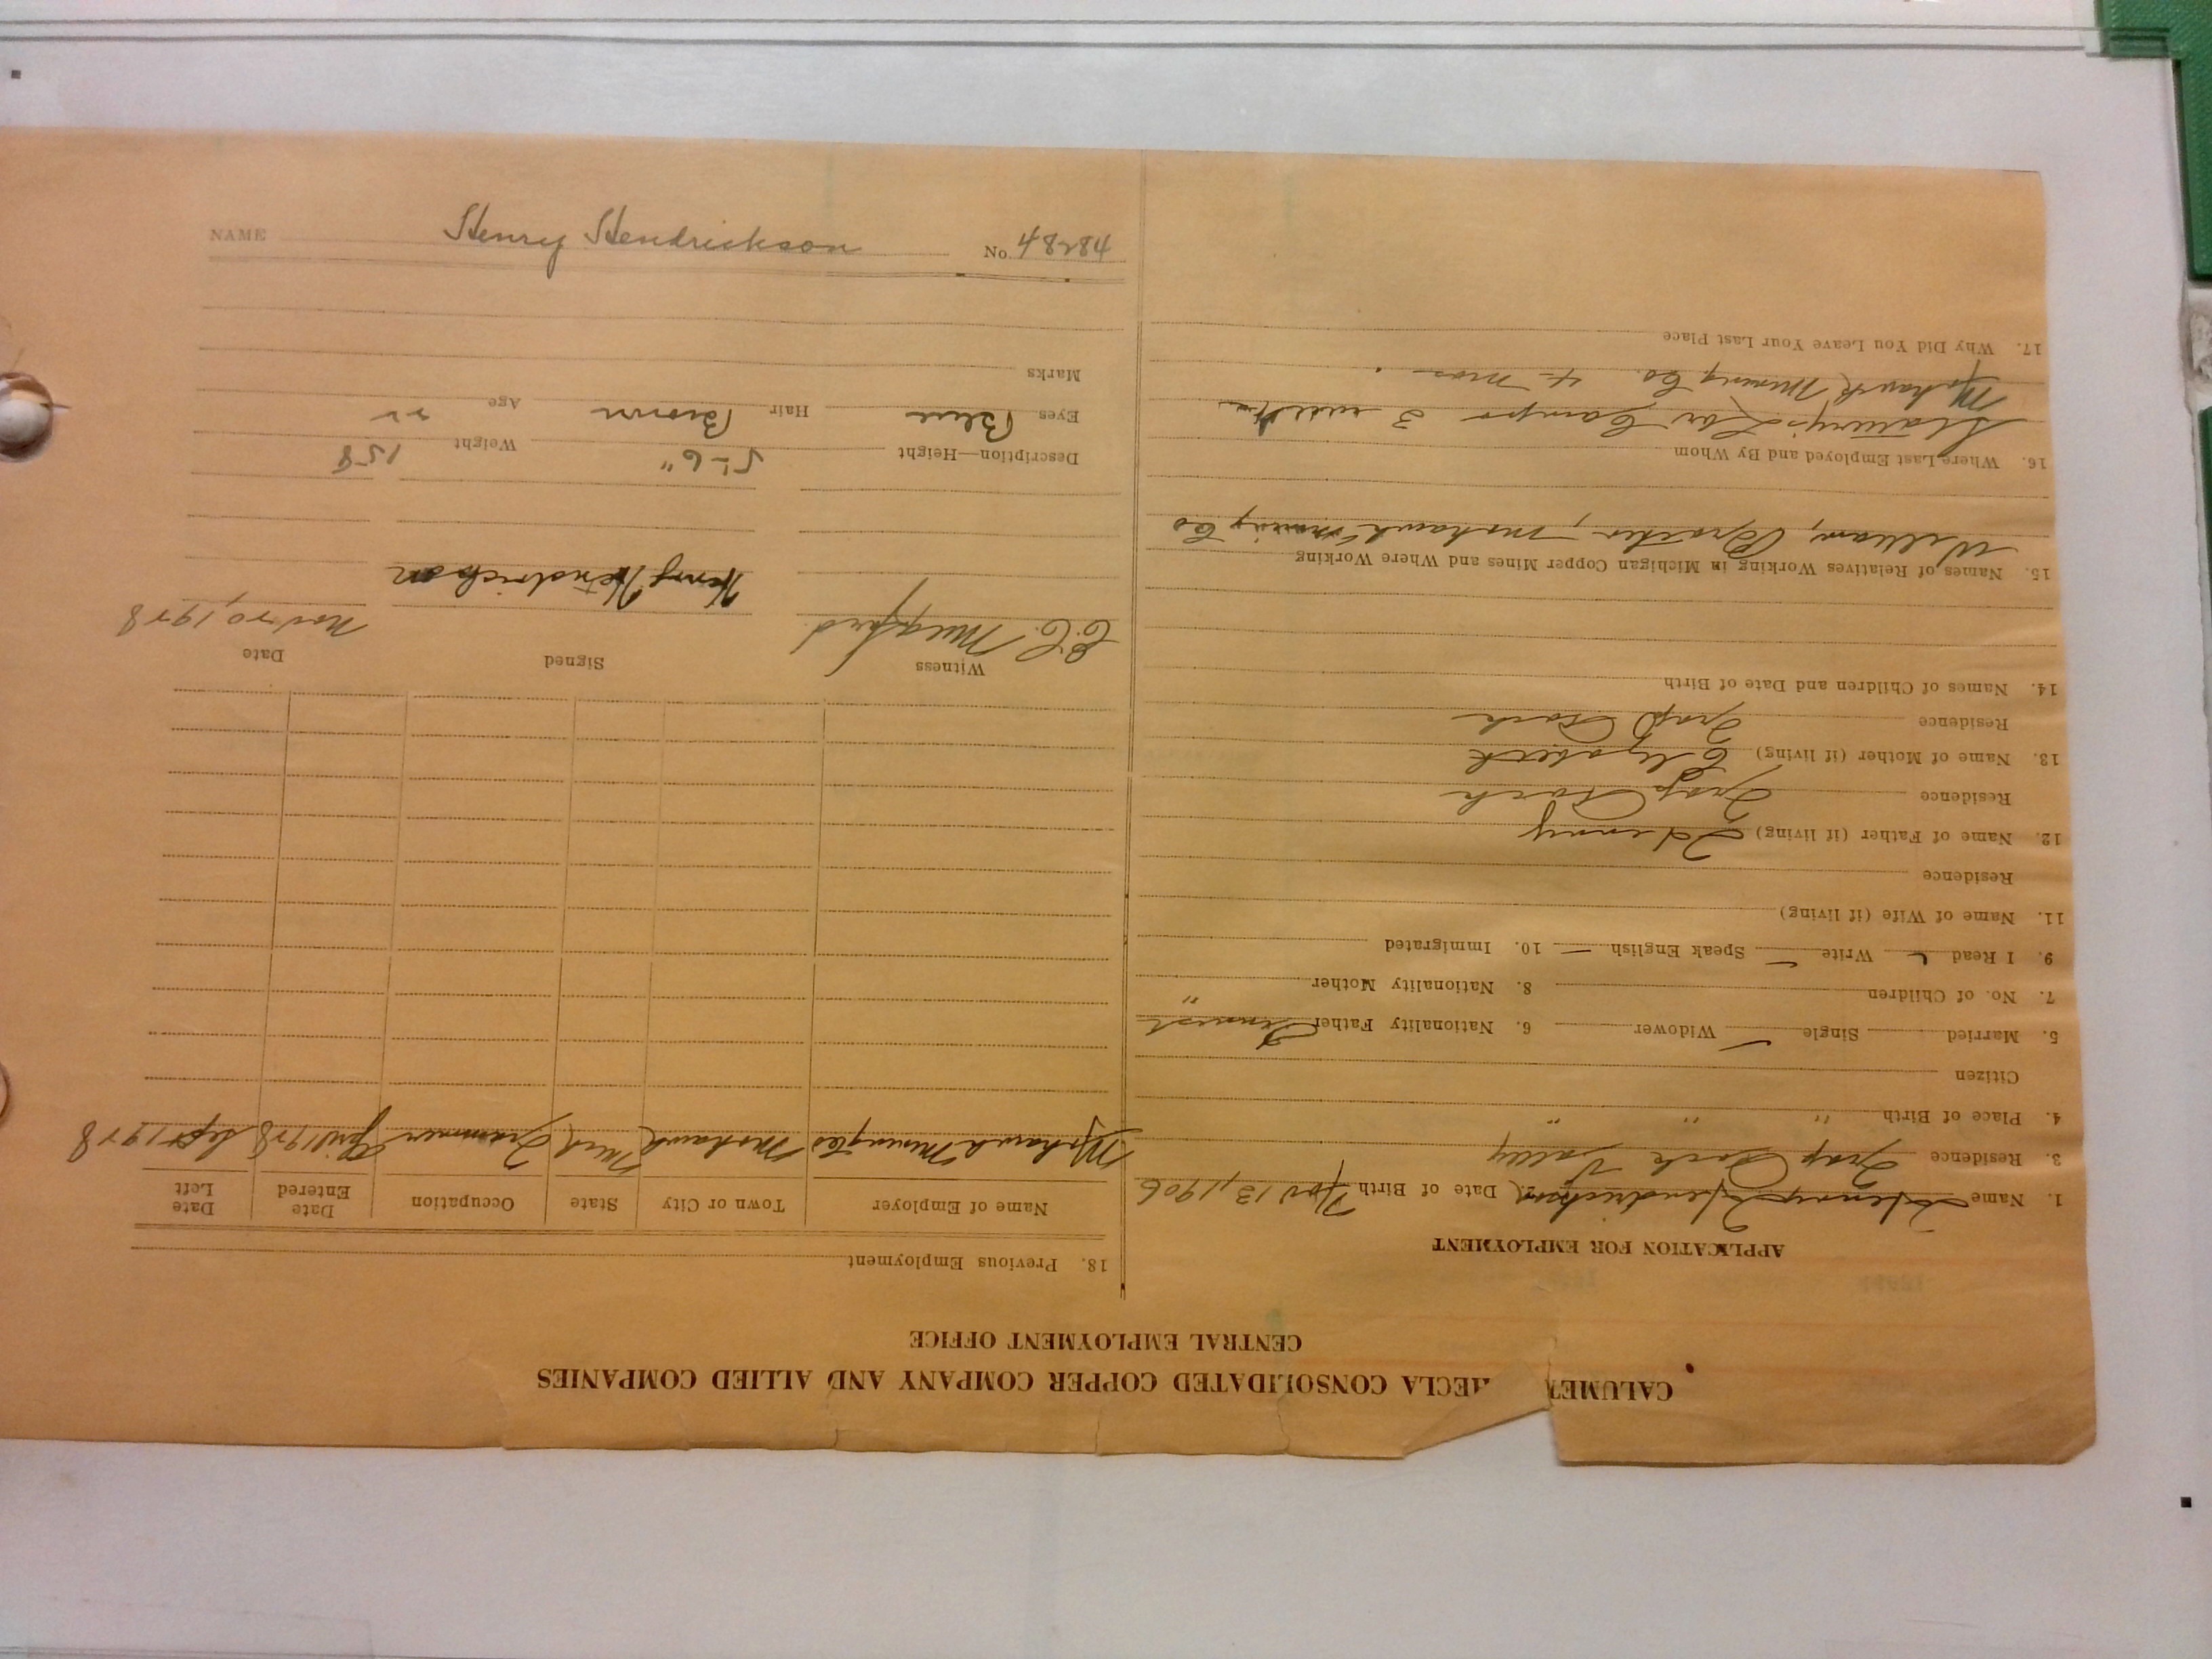 CALUMET HECLA CONSOLIDATED COPPER COMPANY AND ALLIED COMPANIES
CENTRAL EMPLOYMENT OFFICE
APPLICATION FOR EMPLOYMENT
1. Name Henry Hendrickson Date of Birth Nov 13, 1906
3. Residence Trap Rock Valley
4. Place of Birth " " "
Citizen
5. Married Single ✓ Widower 6. Nationality Father Finnish
7. No. of Children 8. Nationality Mother "
9. I Read ✓ Write ✓ Speak English ✓ 10. Immigrated
11. Name of Wife (if living)
Residence
12. Name of Father (if living) Henry
Residence Trap Rock
13. Name of Mother (if living) Elizabeth
Residence Trap Rock
14. Names of Children and Date of Birth
15. Names of Relatives Working in Michigan Copper Mines and Where Working
William, Brother, Mohawk Mining Co
16. Where Last Employed and By Whom
Camps 3 weeks
Mohawk Mining Co. 4 mos.
17. Why Did You Leave Your Last Place
18. Previous Employment
Name of Employer Town or City State Occupation Date Entered Date Left
Mohawk Mining Co Mohawk Mich Trammer April 1928 Sept 1928
Witness Signed Date
C.C. Mugford Henry Hendrickson Nov 20, 1928
Description—Height 5'-6" Weight 158
Eyes Blue Hair Brown Age 22
Marks
NAME Henry Hendrickson No. 48284